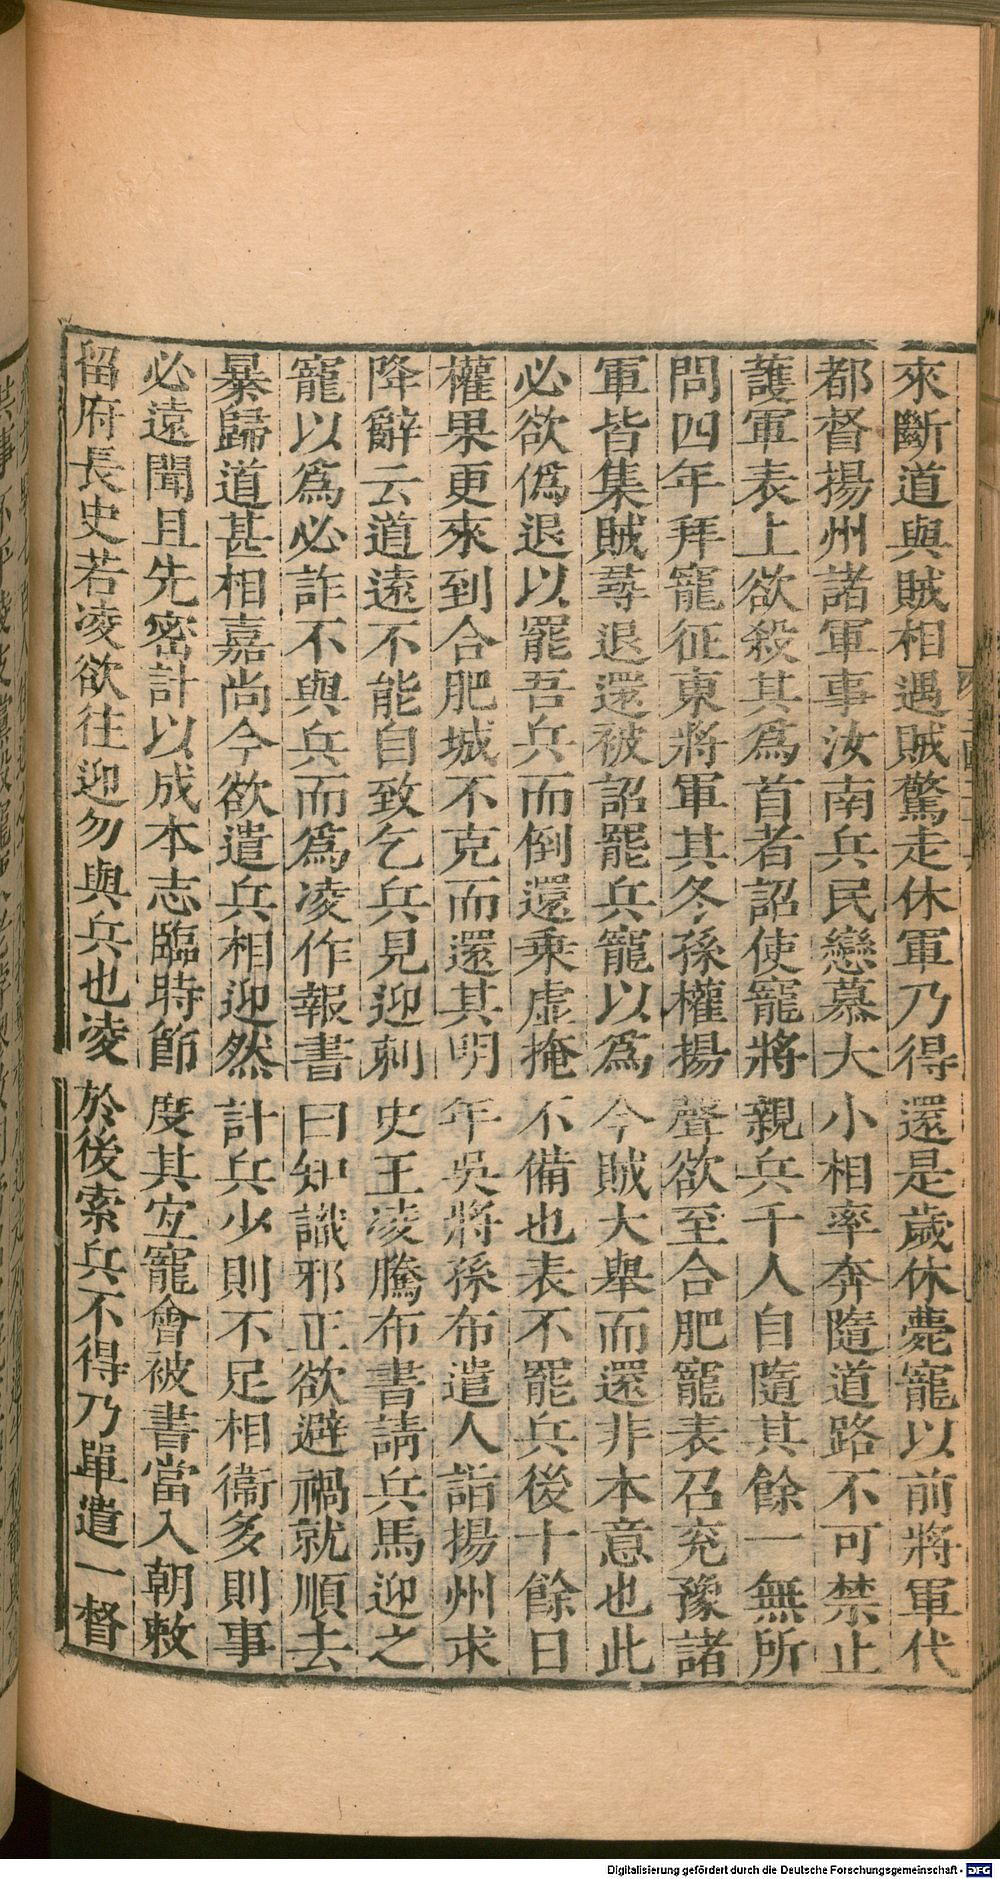 來斷道與賊相遇賊驚走休軍乃得還是歲休薨寵以前將軍代
都督揚州諸軍事汝南兵民戀慕大小相率奔隨道路不可禁止
護軍表上欲殺其爲首者詔使寵將親兵千人自隨其餘一無所
問四年拜寵征東將軍其冬孫權揚聲欲至合肥寵表召兖豫諸
軍皆集賊尋退還被詔罷兵寵以爲今賊大舉而還非本意也此
必欲僞退以罷吾兵而倒還乗虛掩不備也表不罷兵後十餘日
權果更來到合肥城不克而還其明年吳將孫布遣人詣揚州求
降辭云道遠不能自致乞兵見迎刺史王凌騰布書請兵馬迎之
寵以爲必詐不與兵而爲凌作報書曰知識邪正欲避禍就順去
暴歸道甚相嘉尚今欲遣兵相迎然計兵少則不足相衞多則事
必遠聞且先密計以成本志臨時節度其宐寵會被書當入朝敕
留府長史若凌欲往迎勿與兵也凌於後索兵不得乃單遣一督
Digitalisierung gefördert durch die Deutsche Forschungsgemeinschaft - DFG